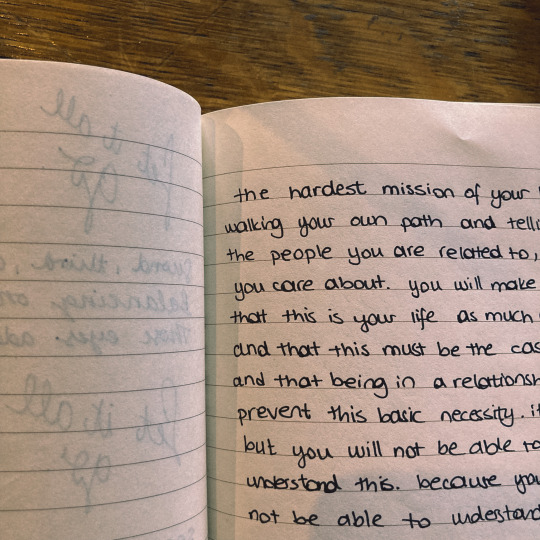 let it all
go
balancing on
those eyes.
let it all
go
the hardest mission of your
walking your own path and tell
the people you are related to,
you care about. you will make
that this is your life as much
and that this must be the cas
and that being in a relationsh
prevent this basic necessity. i
but you will not be able to
understand this. because you
not be able to understand